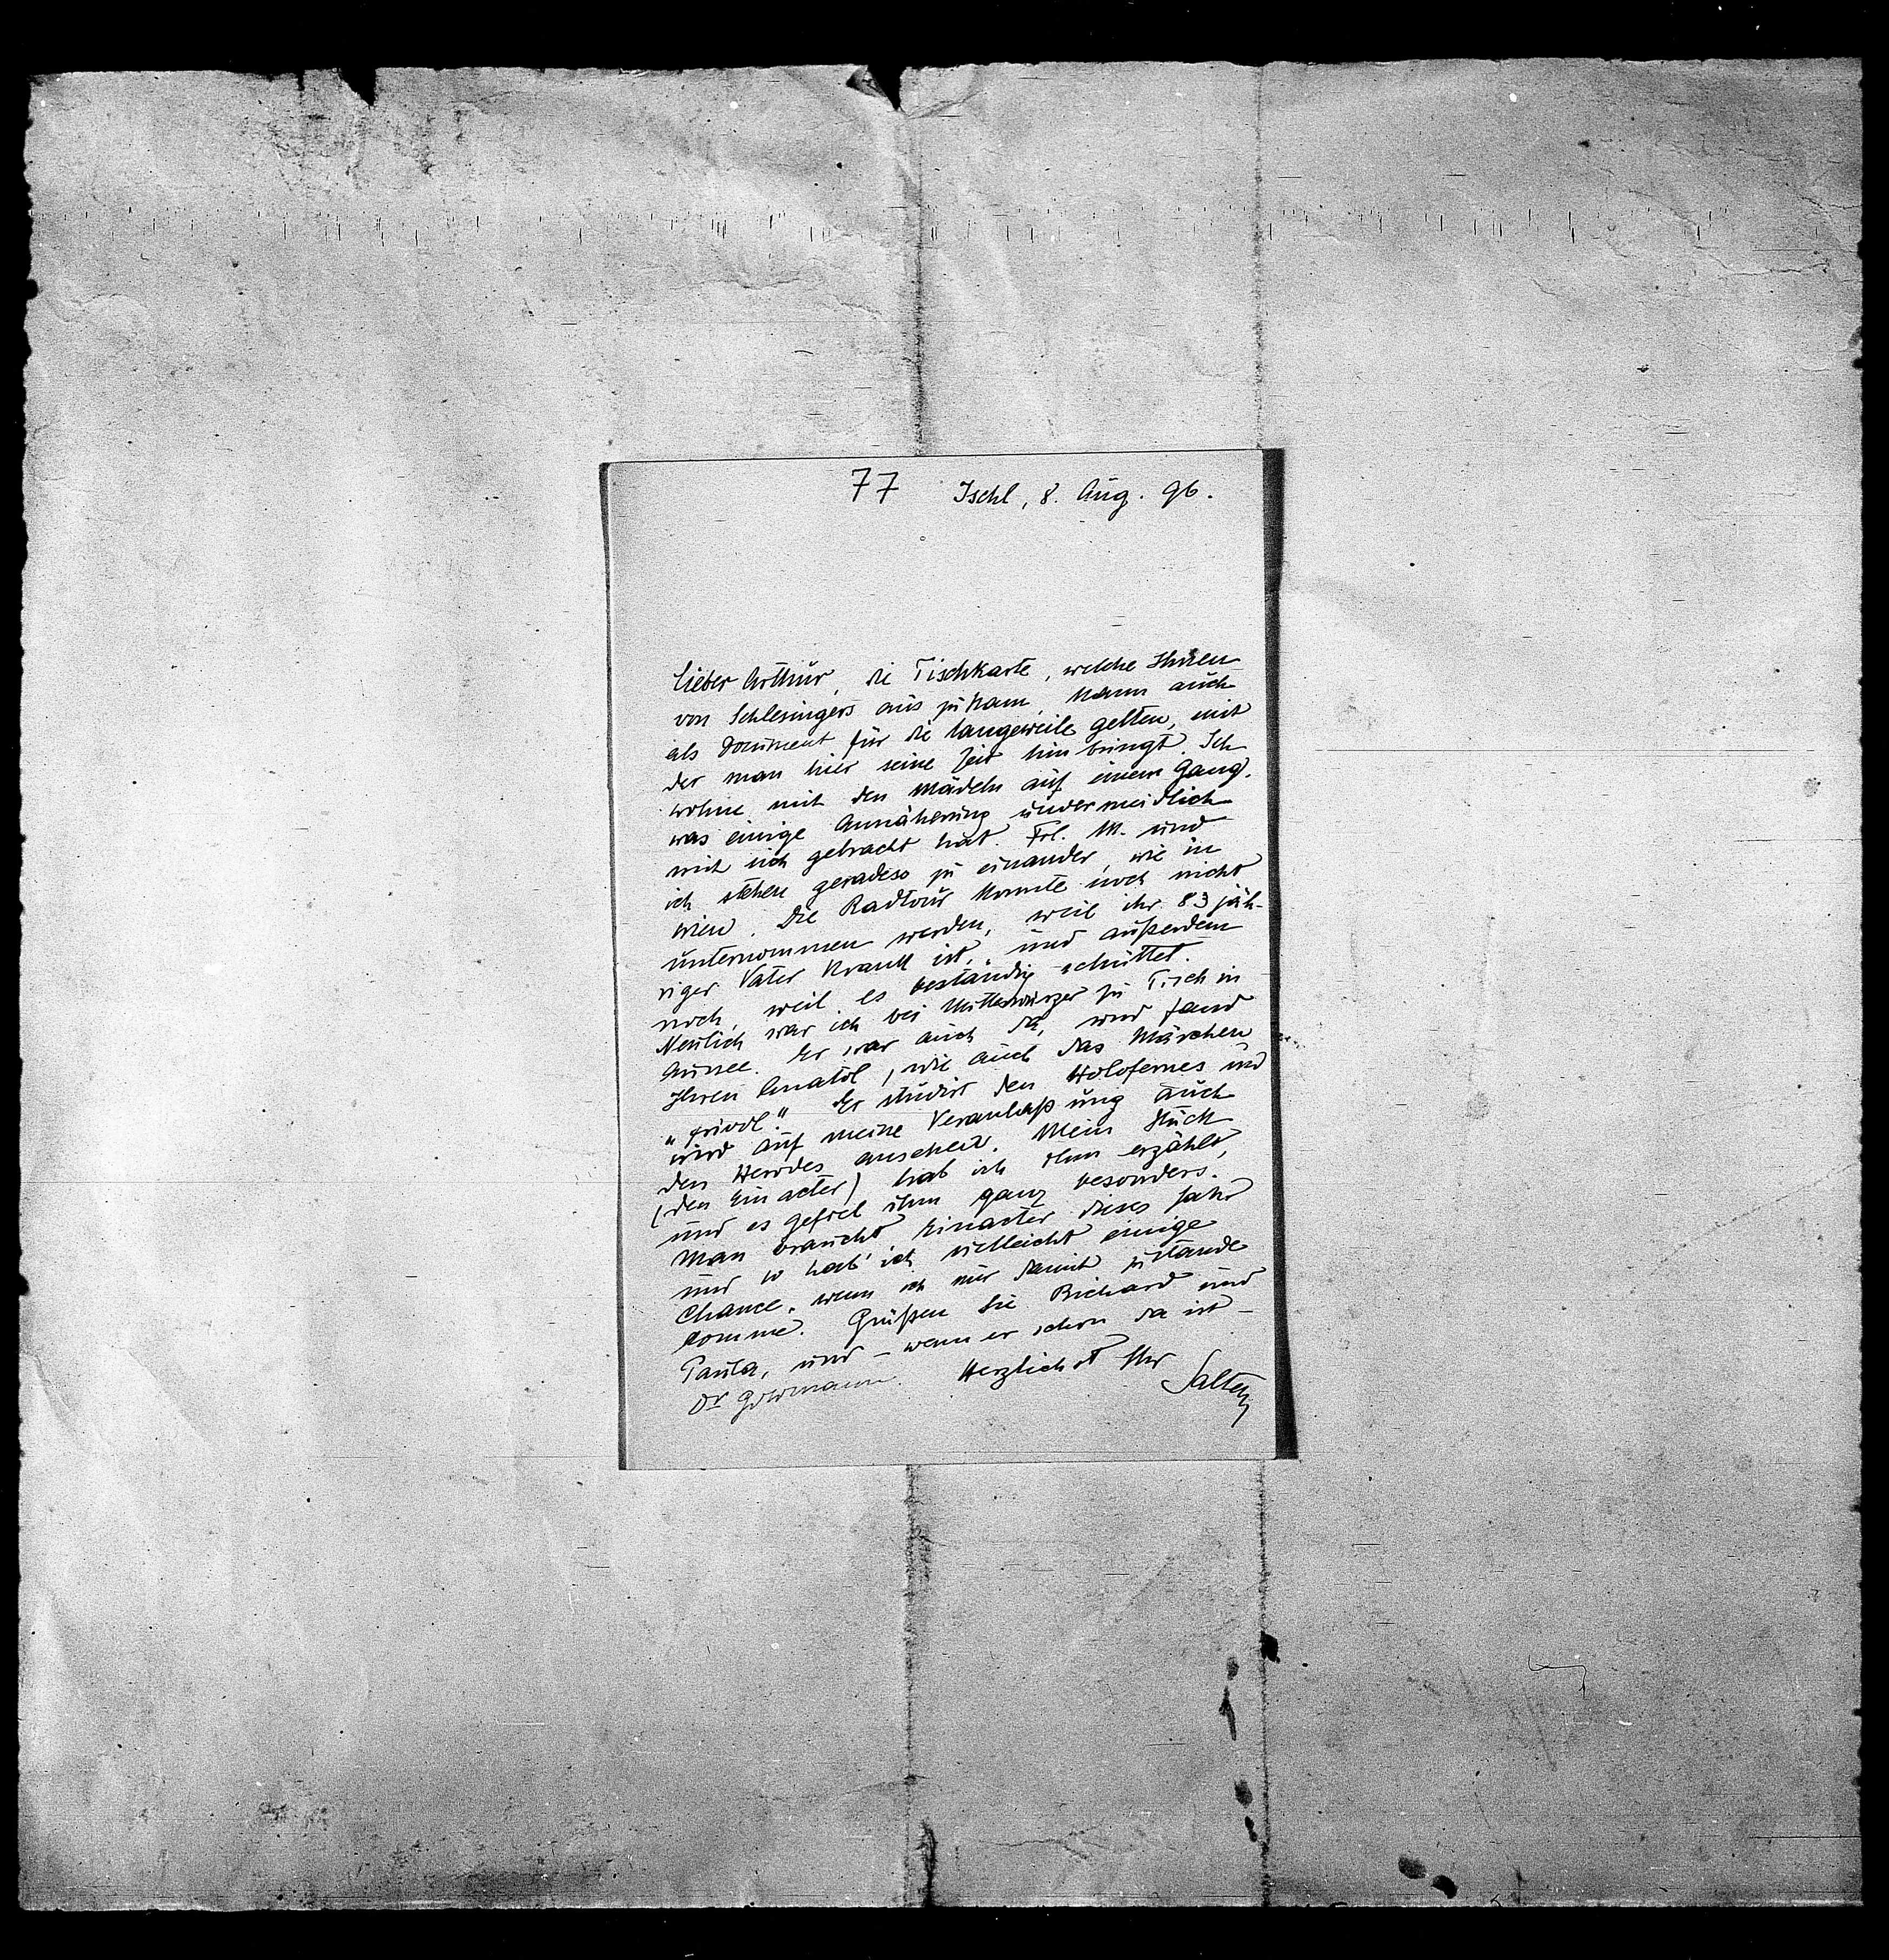 77 Ischl, 8. Aug. 96.
Lieber Arthur, die Tischkarte, welche Ihnen
von Schlesingers aus zukam, kann auch
als Document für die Langeweile gelten, mit
der man hier seine Zeit hinbringt. Ich
wohne mit den Mädeln auf einem Gang,
was einige Annäherung unvermeidlich
mit sich gebracht hat. Frl. M. und
ich stehen geradeso zu einander, wie in
Wien. Die Radtour konnte noch nicht
unternommen werden, weil ihr 83 jäh-
riger Vater krank ist, und außerdem
noch, weil es beständig schüttet.
Neulich war ich bei Mitterwurzer zu Tisch in
Aussee. Er war auch da, und fand
Ihren Anatol, wie auch das Märchen
„frivol." Er studirt den Holofernes und
wird auf meine Veranlaßung auch
den Herodes anschaun. Mein Stück
(den Einacter) hab ich ihm erzählt,
und es gefiel ihm ganz besonders.
Man braucht Einacter dieses Jahr
und so hab' ich vielleicht einige
Chance, wenn ich nur damit zustande
komme. Grüßen Sie Richard und
Paula, und – wenn er schon da ist –
Dr Goldmann. Herzlichst Ihr
Salten